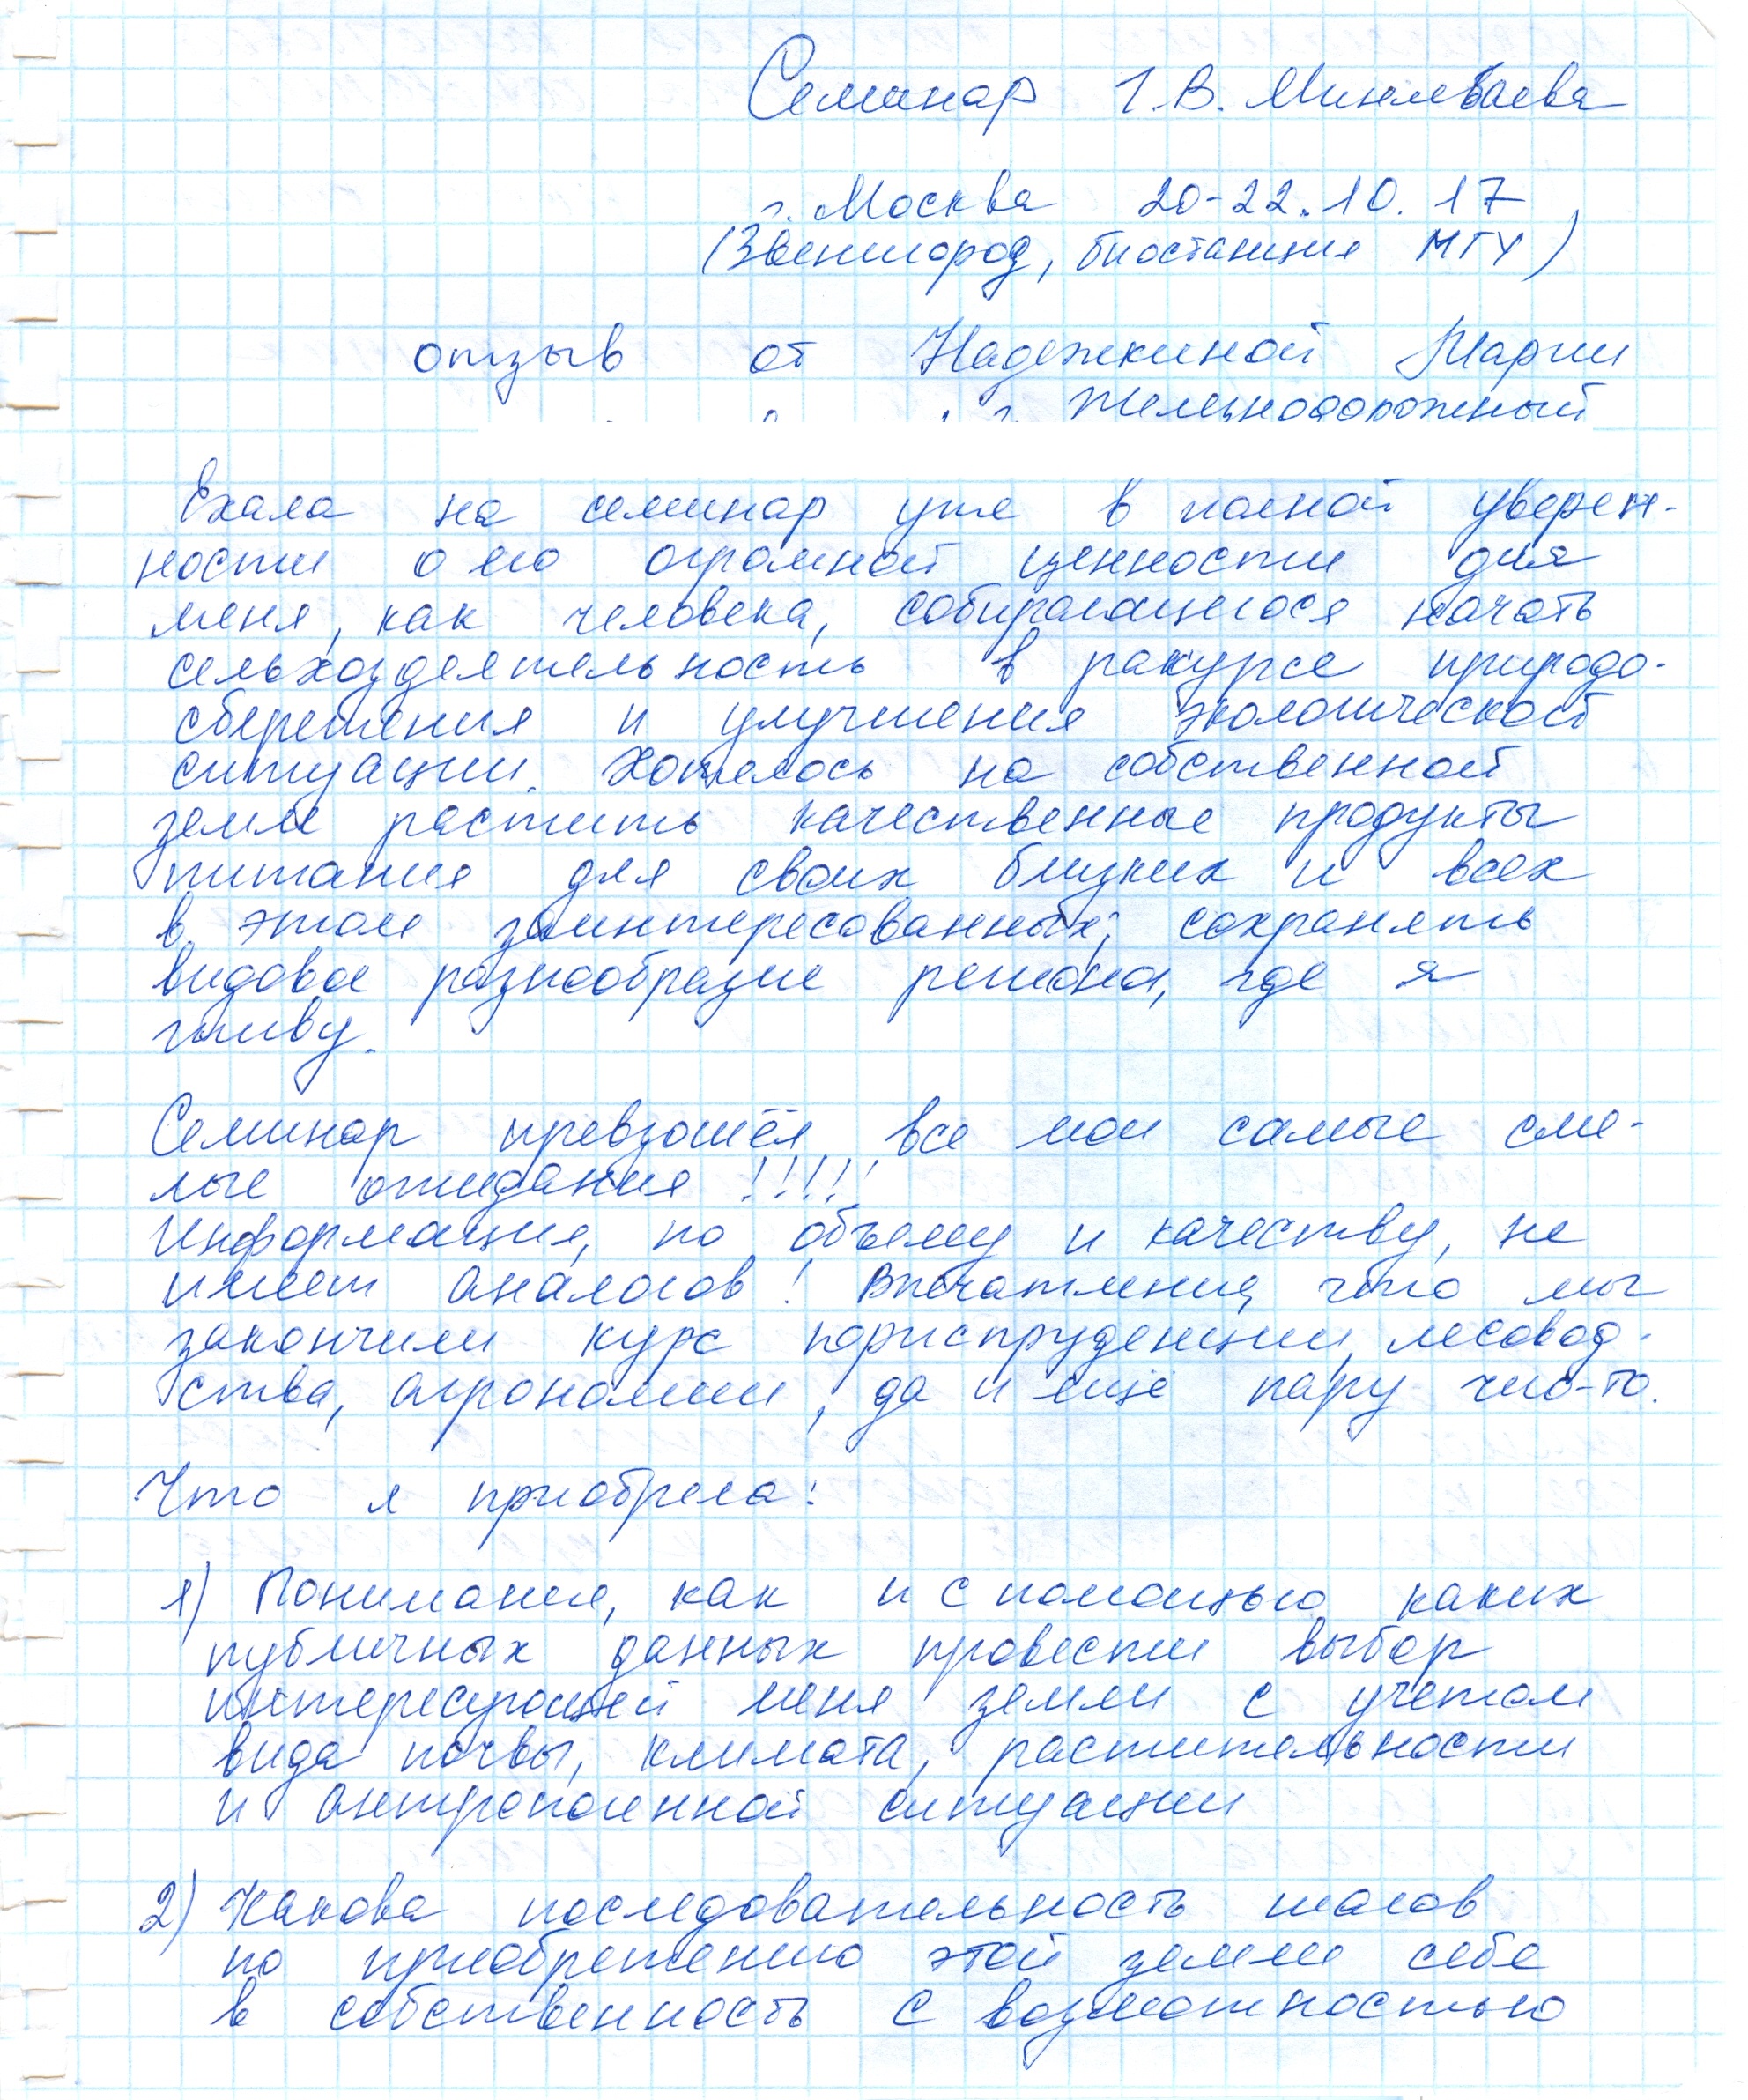 Семинар Г.В. Миннебаева
г. Москва 20-22.10.17
(Звенигород, биостанция МГУ)
отзыв от Надежкиной Марии
г. Железнодорожный
Ехала на семинар уже в полной уверен-
ности о его огромной ценности для
меня, как человека, собирающегося начать
сельхоздеятельность в ракурсе природо-
сбережения и улучшения экологической
ситуации. Хотелось на собственной
земле растить качественные продукты
питания для своих близких и всех
в этом заинтересованных; сохранять
видовое разнообразие региона, где я
живу.
Семинар превзошёл все мои самые сме-
лые ожидания !!!!!
Информация, по объему и качеству, не
имеет аналогов! Впечатление, что мы
закончили курс юриспруденции, лесовод-
ства, агрономии, да и ещё пару чего-то.
Что я приобрела:
1) Понимание, как и с помощью каких
публичных данных провести выбор
интересующей меня земли с учетом
вида почвы, климата, растительности
и антропогенной ситуации
2) Какова последовательность шагов
по приобретению этой земли себе
в собственность с возможностью